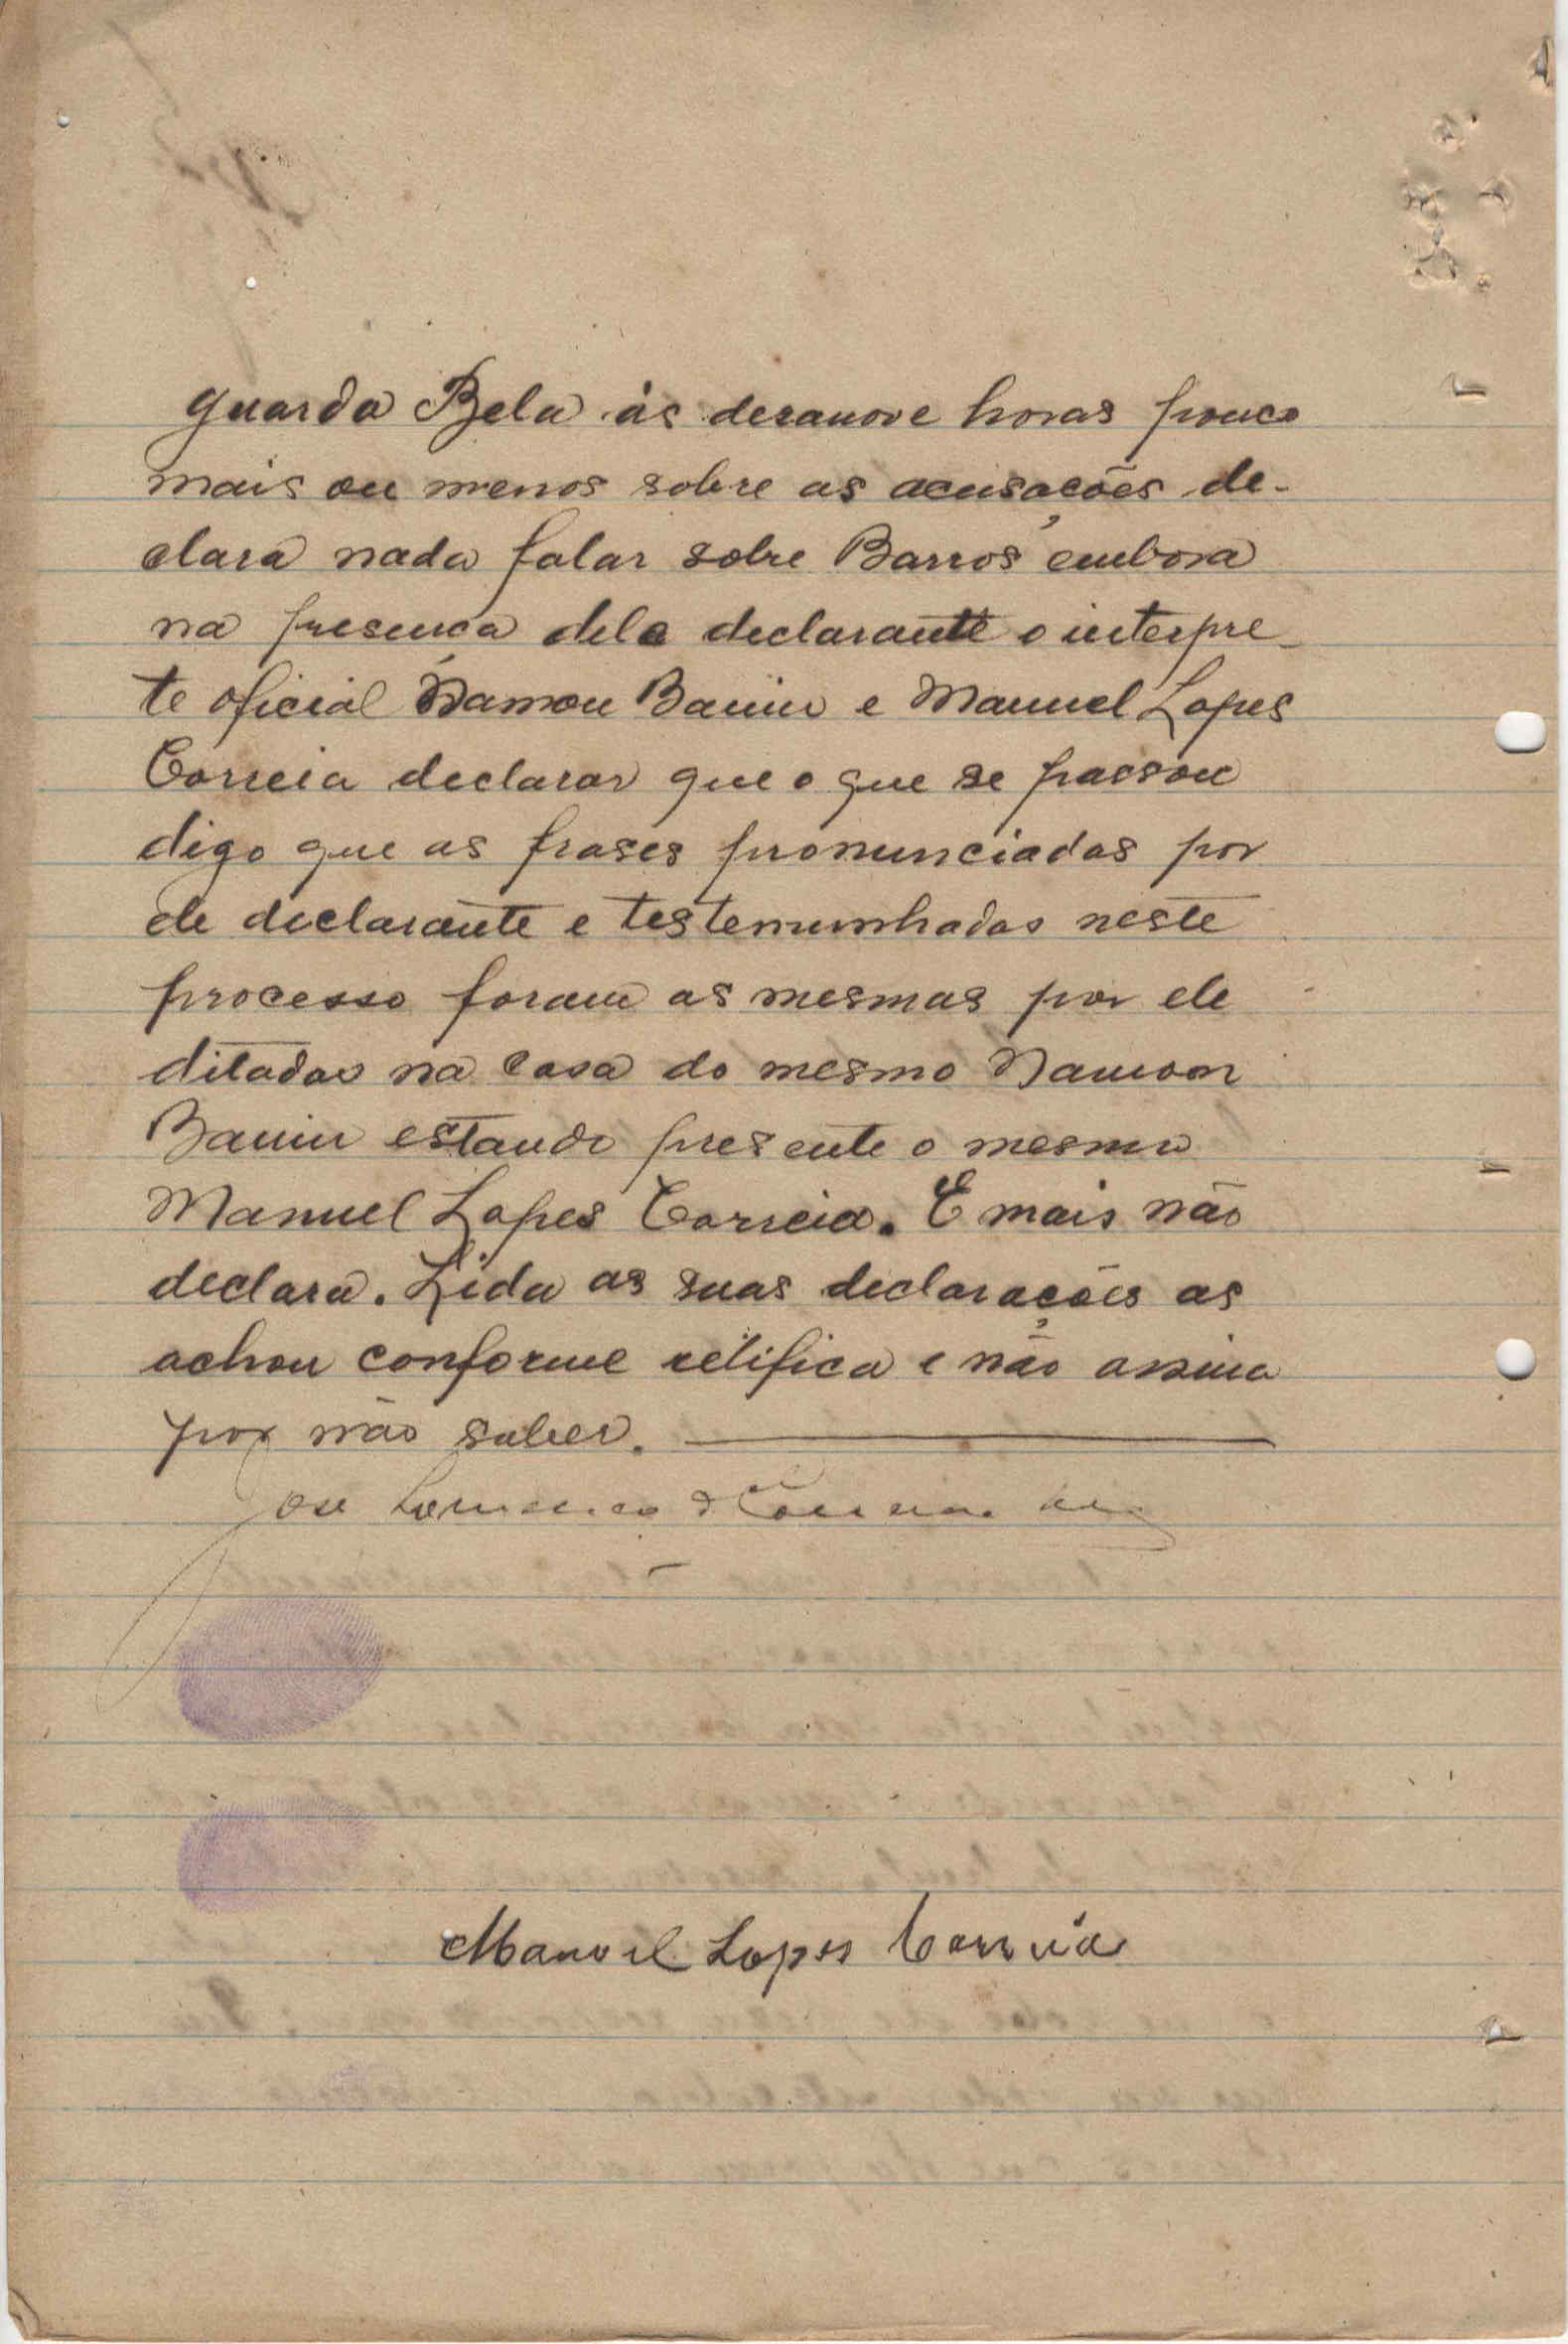 guarda Bela ás deranove horas pouco
mais ou menos sobre as acusações de-
clara nada falar sobre Barros embora
na presença dele declarante o interpre-
te oficial Naman e Manuel Lopes
Correia declarar que o que se passou
digo que as frases pronunciadas por
ele declarante e testemunhadas neste
processo foram as mesmas por ele
ditadas na casa do mesmo
estando presente o mesmo
Manuel Lopes Correia. E mais não
declara. Lida as suas declarações as
achou conforme retifica e não assina
por não saber.
Jose
Manoel Lopes Correia